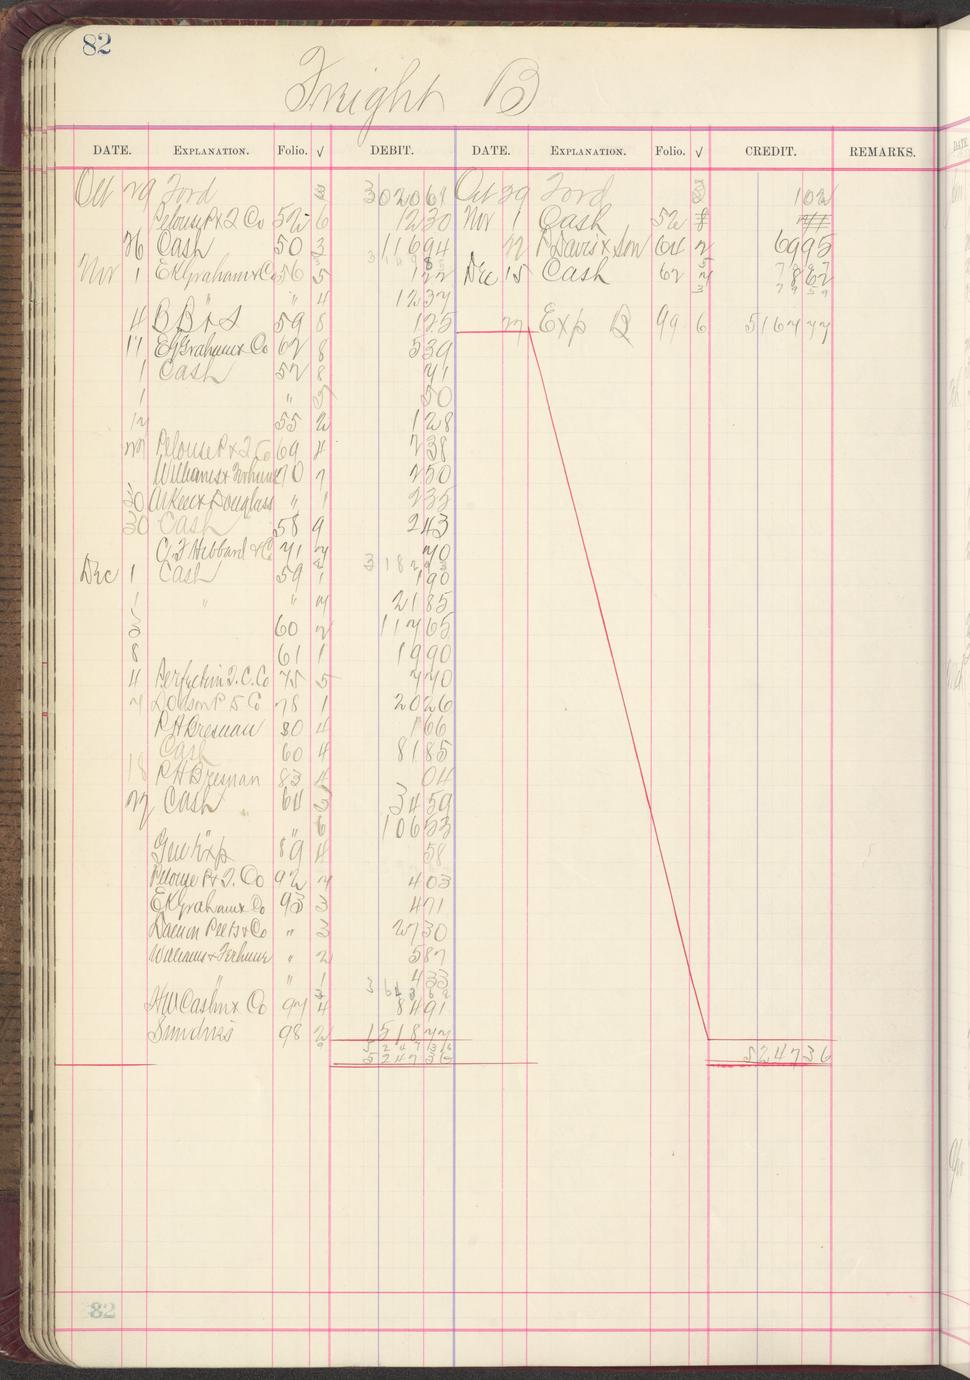 82
Freight B
DATE. EXPLANATION. Folio. √ DEBIT. DATE. EXPLANATION. Folio. √ CREDIT. REMARKS.
Oct 29 Ford 3 302061 Oct 29 Ford 102
Pelouse P & I Co 52 6 1230 Nov 1 Cash 52
26 Cash 50 3 11694 P Davis & Son 64 2 6995
Nov 1 E K Graham & Co 56 5 122 Dec 15 Cash 62 7862
" 4 1237
4 B B & S 59 8 125 27 Exp B 99 6 516777
11 E K Graham & Co 62 8 539
1 Cash 52 8 41
1 " 50
55 2 128
Pelouse P & I Co 69 4 238
Williams & Terhune 70 7 250
30 Douglass " 1 235
30 Cash 58 9 243
C F Hibbard & Co 71 70
Dec 1 Cash 59 1 190
1 " " 2185
5 60 2 11765
8 61 1 1990
4 Perfection I. C. Co 75 5 770
78 1 2026
P H Bresnan 80 4 166
Cash 60 4 8185
18 P H Bresnan 83 4 04
27 Cash 64 3459
" " 6 10653
Gen Exp 89 4 58
Pelouse P & I. Co 92 403
E K Graham & Co 93 3 471
Peets & Co " 3 2730
Williams & Terhune " 2 587
" " 1 433
H W Co 97 4 8491
Sundries 98 2 151877
524736 524736
82